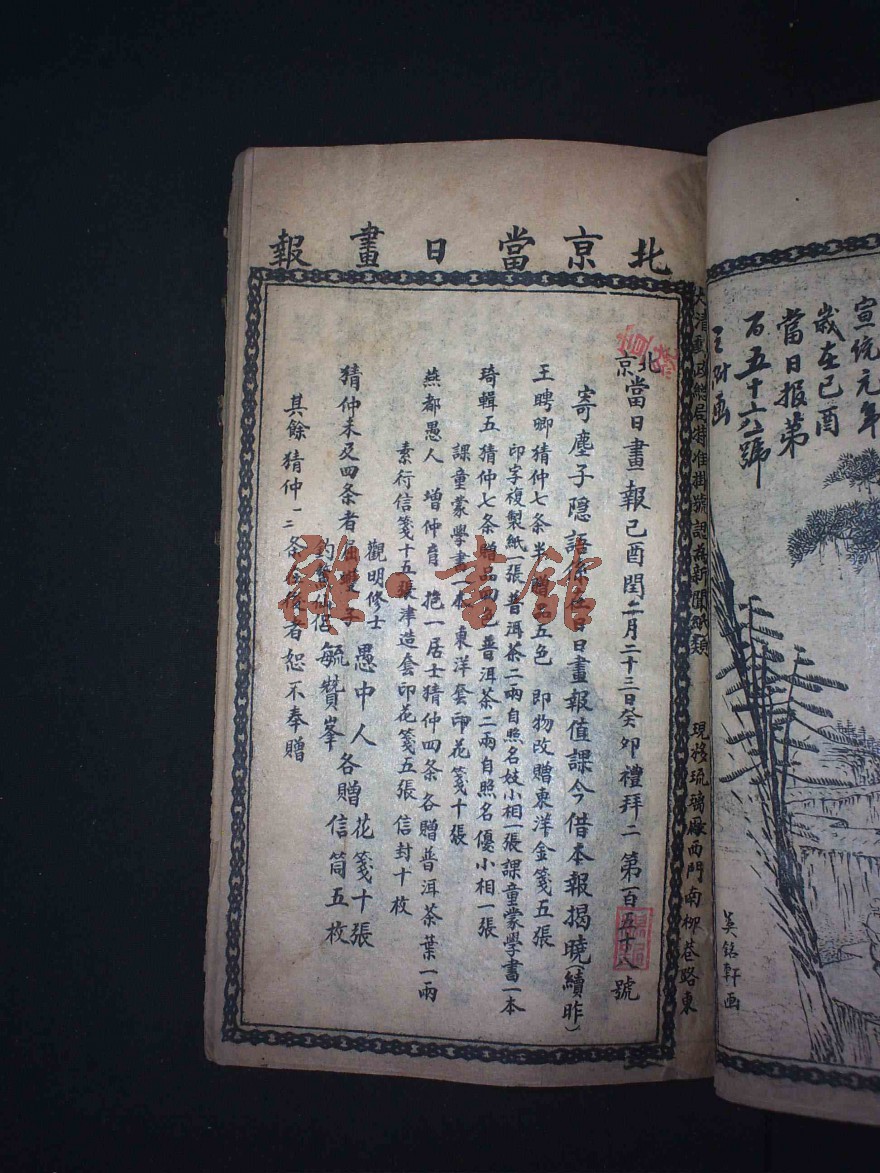 北京當日畫報
北京當日畫報己酉閏二月二十三日癸卯禮拜二 第一百五十八號
寄塵子隱語係在日日畫報值課今借本報揭曉(續昨)
王聘卿猜仲七条半贈品五色 即物改贈東洋金箋五張
印字複製紙一張普洱茶二兩自照名妓小相一張課童蒙學書一本
琦輯五猜仲七条贈品四色普洱茶二兩自照名優小相一張
課童蒙學書一本東洋套印花箋十張
燕都愚人 增仲育 抱一居士猜仲四条各贈普洱茶葉一兩
素行信箋十五張津造套印花箋五張信封十枚
觀明修士 愚中人各贈花箋十張
猜仲未及四条者 子
釣 仙侶 毓贊峯 信筒五枚
其餘猜仲一二条 者恕不奉贈
大清 政 局特准掛號認為新聞紙類 現移琉璃廠西門南柳巷路東
宣統元年
歲在己酉
當日报第
百五十六號
画
吳銘軒画
雅·書館